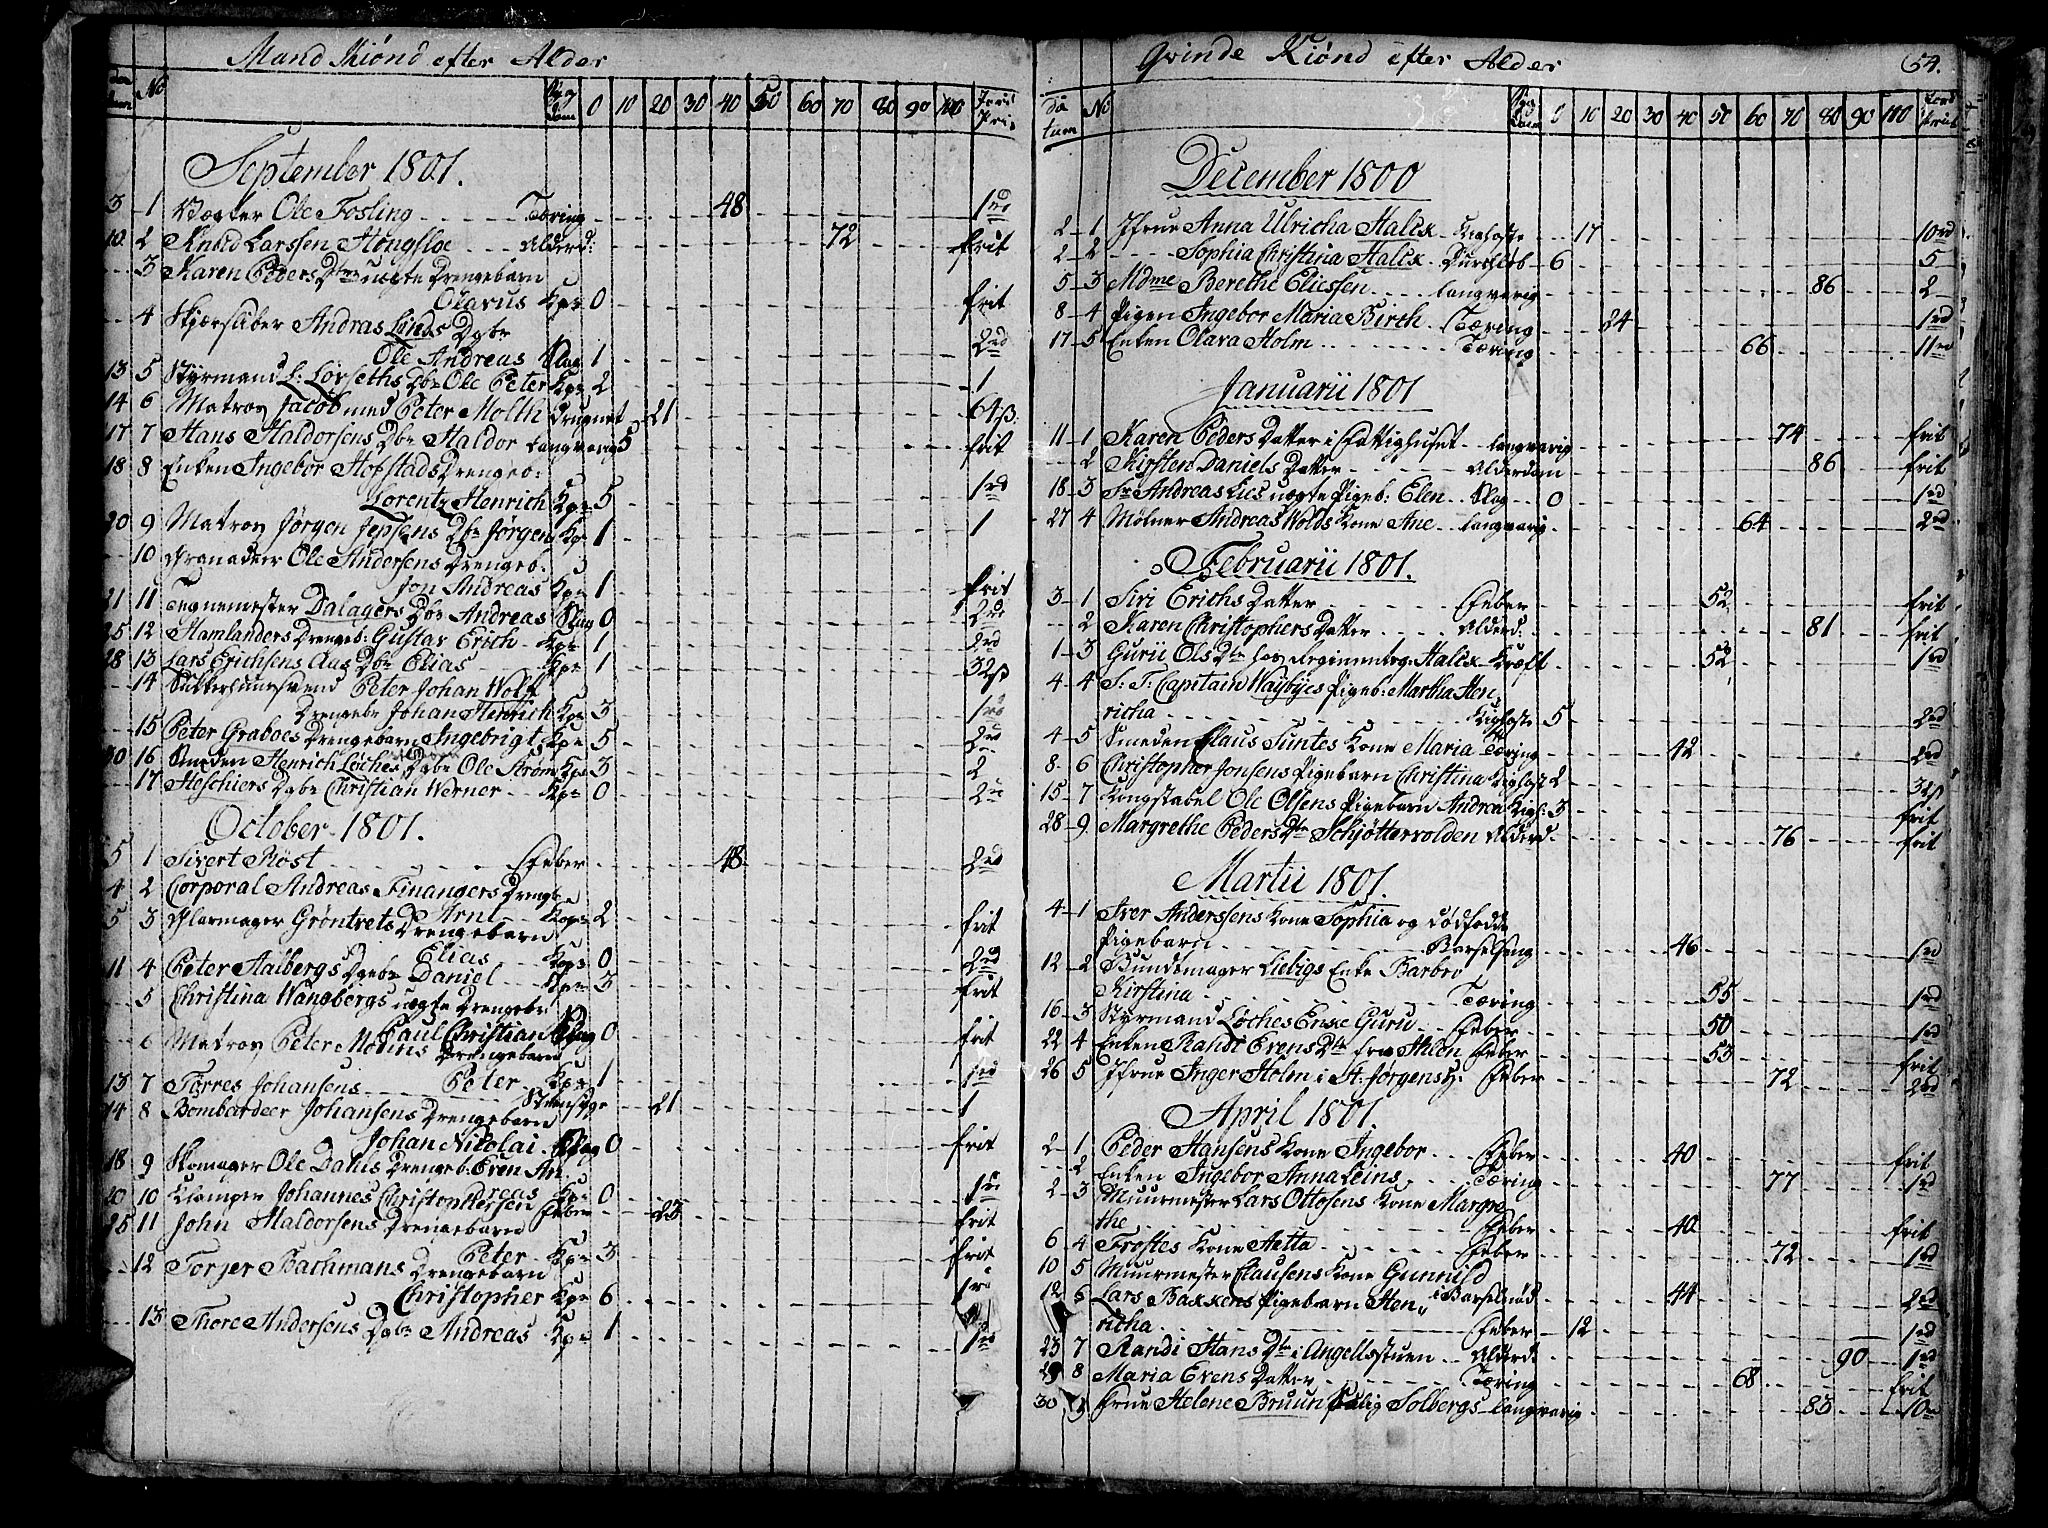 Mand Kiönd efter Alder
da tum No Syg dom 0 10 20 30 40 50 60 70 80 90 100 Jord Pris
September 1801.
3 1 Vægter Ole Fosling Tæring 48 1rd
10 2 Knud Larssen Hongsloe Alderd: 72 frit
3 Karen Peders Dtrs uægte Drengebarn
Olavus Kpr 0 frit
4 Skjærsliber Andras Linds Dgbr
Ole Andreas Slag 1 2rd
13 5 Styrmand L: Lorseths Dbr Ole Peter Kpr 2 1
14 6 Matros Jacob med Peter Molth Drugnet 21 64ß
17 7 Hans Haldorsens Dbr Haldor langvarig 5 frit
18 8 Enken Ingebor Hofstads Drengeb:
Lorentz Henrich Kpr 5 1rd
20 9 Matros Jørgen Jepsens Dbr Jørgen Kpr 1 1
10 Granadeer Ole Andersens Drengeb.
Jon Andreas Kpr 1 frit
21 11 Tegnemester Dalagers Dbr Andreas Slag 0 2rd
25 12 Hamlanders Drengeb: Gustav Erich Kpr 1 2rd
28 13 Lars Erichsens Aas Dbr Elias Kpr 1 32ß
14 Sukkerhuussvend Peter Johan Wolf
Drengebr Johan Henrich Kpr 3 1rd
15 Peter Graboes Drengebarn Ingebrigt Kpr 5 2rd
30 16 Smeden Henrich Løches Dgbr Ole Strøm Kpr 3 2
17 Heschiers Dgbr Christian Werner Kpr 0 2rd
October 1801.
5 1 Sivert Röst Feber 48 2rd
4 2 Corporal Andreas Finangers Drengbr
Arnt Kopr 2 frit
5 3 Glarmager Gröntvets Drengebarn
Elias Kopr 0 2rd
11 4 Peter Aalbergs Dgebr Daniel Kpr 3 frit
5 Christina Wansbergs uægte Drengebr
Paul Christian Slag 0 frit
6 Matros Peter Molins Drengebarn
Peter Kpr 1 1rd
13 7 Torres Johansens 21 1
14 8 Bombardeer Johansens Drengebarn
Johan Nicolai Slag 0 frit
18 9 Skomager Ole Dahls Drengeb. Even An
dreas Kpr 0 1rd
20 10 Klamper Johannes Christophersen Feber 25 frit
25 11 John Haldorsens Drengebarn
Peter Kpr 3 frit
12 Torjer Bachmans Drengebarn
Christopher Kpr 6 1rd
13 Thore Andersens Dgbr Andreas Kpr 1 1rd
Qvinde Kiønd efter Alder 54.
da tum No Syg dom 0 10 20 30 40 50 60 70 80 90 100 Jord Pris
December 1800
2 1 Jfrue Anna Ulricha Halex Kighoste 17 10rd
2 2 Sophia Christina Halex Durchløb 6 5
5 3 Mdme Berethe Eliessen langvarig 86 2
8 4 Pigen Ingebor Maria Birch Tæring 24 1rd
17 5 Enken Olava Holm Tæring 66 11rd
Januarii 1801
11 1 Karen Peders Datter i Fattighuset langvarig 74 frit
2 Kirsten Daniels Datter Alderdom 86 frit
18 3 Sr Andreas Lies uægte Pigeb: Elen Slag 0 1rd
27 4 Mølner Andreas Wolds Kone Ane langvarig 64 2rd
Februarii 1801.
3 1 Siri Erichs Datter Feber 52 frit
2 Karen Christophers Datter Alderd: 81 frit
1 3 Guru Ols Dtr hos Regimentsq: Halex Kræft 52 1rd
4 4 S: T: Capitain Waybyes Pigeb: Martha Hen
richa Kighoste 5 2rd
4 5 Smeden Claus Tuntes Kone Maria Tæring 42 2rd
8 6 Christopher Jonsens Pigebarn Christina Kighost 2 32ß
15 7 Kongstabel Ole Olsens Pigebarn Andrea Kigh: 3 frit
28 9 Margrethe Peders Dtr Schjøttervolden Alderd 76 frit
Martii 1801.
4 1 Iver Anderssens Kone Sophia og dødfødde
Pigebarn Barselseng 46 1rd
12 2 Bundtmager Liebigs Enke Barbro
Kirstina Tæring 55 1rd
16 3 Styrmand Løches Enke Guru Feber 50 1rd
22 4 Enken Randi Evens Dtr fra Ihlen Feber 53 frit
26 5 Jfrue Inger Holm i St: Jørgens H: Feber 72 2rd
April 1801.
2 1 Peder Hansens Kone Ingebor Feber 40 frit
2 Enken Ingebor Anna Leins Tæring 77 1rd
2 3 Muurmester Lars Ottosens Kone Margre
the Feber 40 frit
6 4 Frostes Kone Aetta Feber 72 1rd
10 5 Muurmester Clausens Kone Gunnild
i Barselnød 44 2rd
12 6 Lars Bakkens Pigebarn Hen
richa Feber 12 1rd
23 7 Randi Hans Dtr i Angellsstuen Alderd: 90 1rd
29 8 Maria Evens Datter Tæring 68 frit
30 9 Frue Helene Bruun Salig Solbergs langvarig 85 10rd